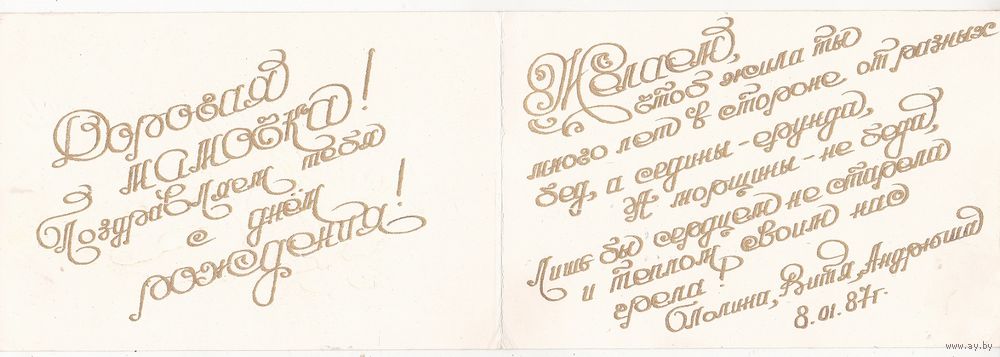 Дорогая
мамочка!
Поздравляем тебя
с днём
рождения!
Желаем,
чтоб жила ты
много лет в стороне от разных
бед, а седины - ерунда,
А морщины - не беда,
Лишь бы сердцем не старела
и теплом своим нас
грела!
Полина, Витя, Андрюша
8.01.87г.
www.ay.by